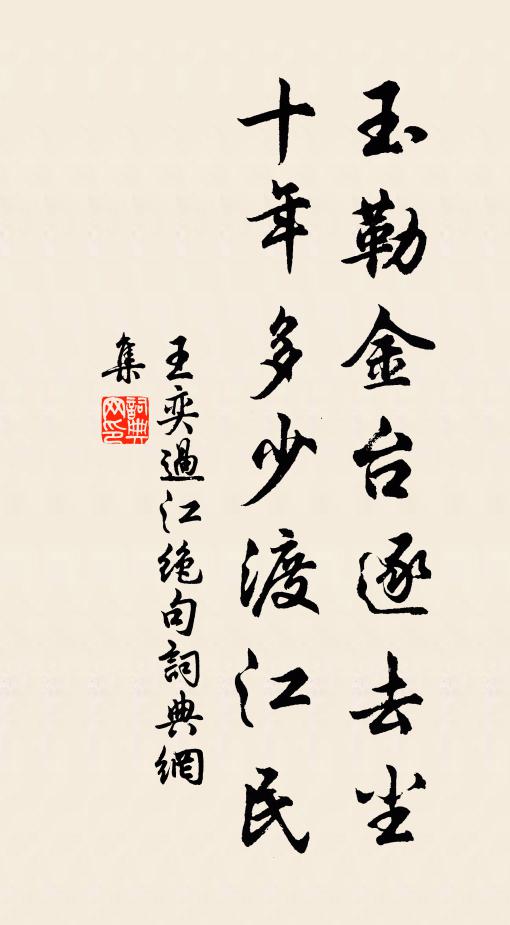 玉勒金台逐去尘
十年多少渡江民
王奕過江绝句詞典網
集
詞典网印